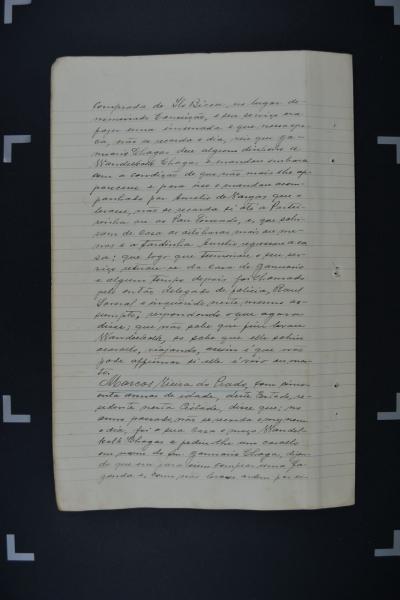 comprada de Ilo Bicca, no lugar de-
nominado Conceição, e seu serviço era
fazer uma invernada e que nessa epo-
ca, não se recorda o dia, veio que Ja-
nuario Chagas deu algum dinheiro a
Wandelkolk Chagas e mandou embora
com a condição de que não mais lhe ap-
parecesse e para isso o mandou acom-
panhado por Aurelio de Vargas que o
levasse, não se recorda si até a Partei-
rinha ou ao Pau Fincado, e que sahi-
ram de casa as oito horas mais ou me-
nos e a tardinha Aurelio regressou a ca-
sa; que logo que terminou o seu ser-
viço retirou-se da casa de Januario
e algum tempo depois foi chamado
pelo então delegado de policia, Raul
e inquerido, neste mesmo as-
sumpto, respondendo o que agora
disse; que não sabe que fim levou
Wandelkolk, só sabe que elle sahiu
a cavallo, viajando, assim é que não
pode affirmar si elle é vivo ou mor-
to.
Marcos Vieira do Prado, com cinco-
enta annos de idade, deste Estado, re-
sidente nesta Cidade, disse que; no
anno passado, não se recorda o mez nem
o dia, foi a sua casa o moço Wandel-
kolk Chagas e pediu-lhe um cavallo
em nome do Snr. Januario Chagas, dizen-
do que era para comprar uma fa-
zenda e, como não levasse ordem por es-